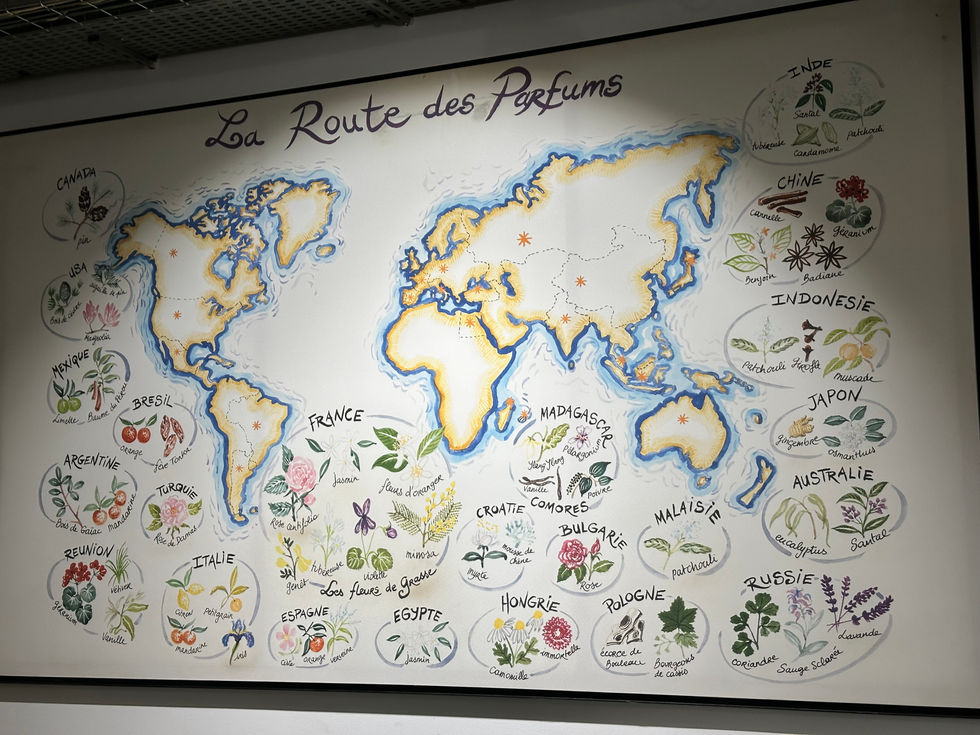 La Route des Parfums
CANADA
pin
USA
Magnolia
MEXIQUE
Limette
Baume du Pérou
BRESIL
orange
fève Tonka
ARGENTINE
Bois de Gaïac
mandarine
TURQUIE
Rose de Damas
REUNION
géranium
vétiver
Vanille
ITALIE
citron
petitgrain
mandarine
iris
FRANCE
Rose centifolia
Jasmin
fleurs d'oranger
genêt
tubéreuse
violette
mimosa
Les fleurs de Grasse
ESPAGNE
ciste
orange
verveine
EGYPTE
Jasmin
MADAGASCAR
Ylang Ylang
Pélargonium
Vanille
Poivre
COMORES
CROATIE
myrte
mousse de
chêne
BULGARIE
Rose
MALAISIE
patchouli
HONGRIE
Camomille
immortelle
POLOGNE
écorce de
Bouleau
Bourgeons
de cassis
RUSSIE
coriandre
Sauge Sclarée
Lavande
INDE
tubéreuse
Santal
cardamome
patchouli
CHINE
cannelle
géranium
Benjoin
Badiane
INDONESIE
patchouli
Girofle
muscade
JAPON
gingembre
osmanthus
AUSTRALIE
eucalyptus
Santal